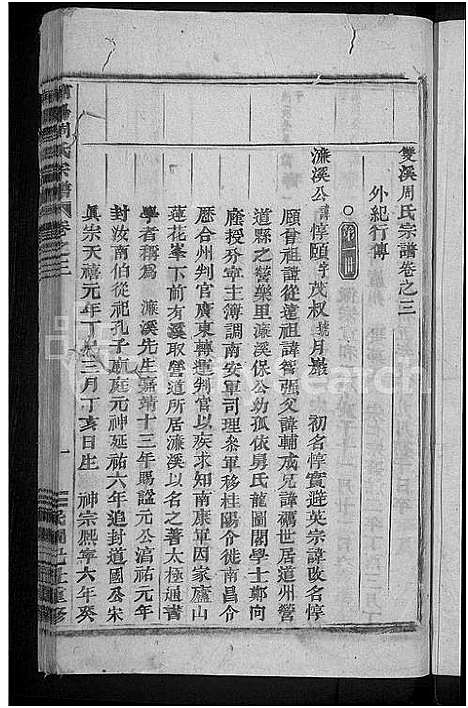 雙溪周氏宗譜卷之三
外紀行傳
濂溪公諱惇頤字茂叔號月巖 初名惇實避英宗諱改名惇
頤曾祖諱從遠祖諱智强父諱輔成兄諱礪世居道州營
道縣之營樂里濂溪保公幼孤依舅氏龍圖閣學士鄭向
廕授分寧主簿調南安軍司理叅軍移桂陽令徙南昌令
歷合州判官廣東轉運判官以疾求知南康軍因家廬山
蓮花峯下前有溪取營道所居濂溪以名之著太極通書
學者稱爲 濂溪先生嘉靖十三年賜諡元公淳祐元年
封汝南伯從祀孔子廟庭元神延祐六年追封道國公宋
眞宗天禧元年丁巳三月丁亥日生 神宗熙寧六年癸
周氏宗譜 卷之三
一